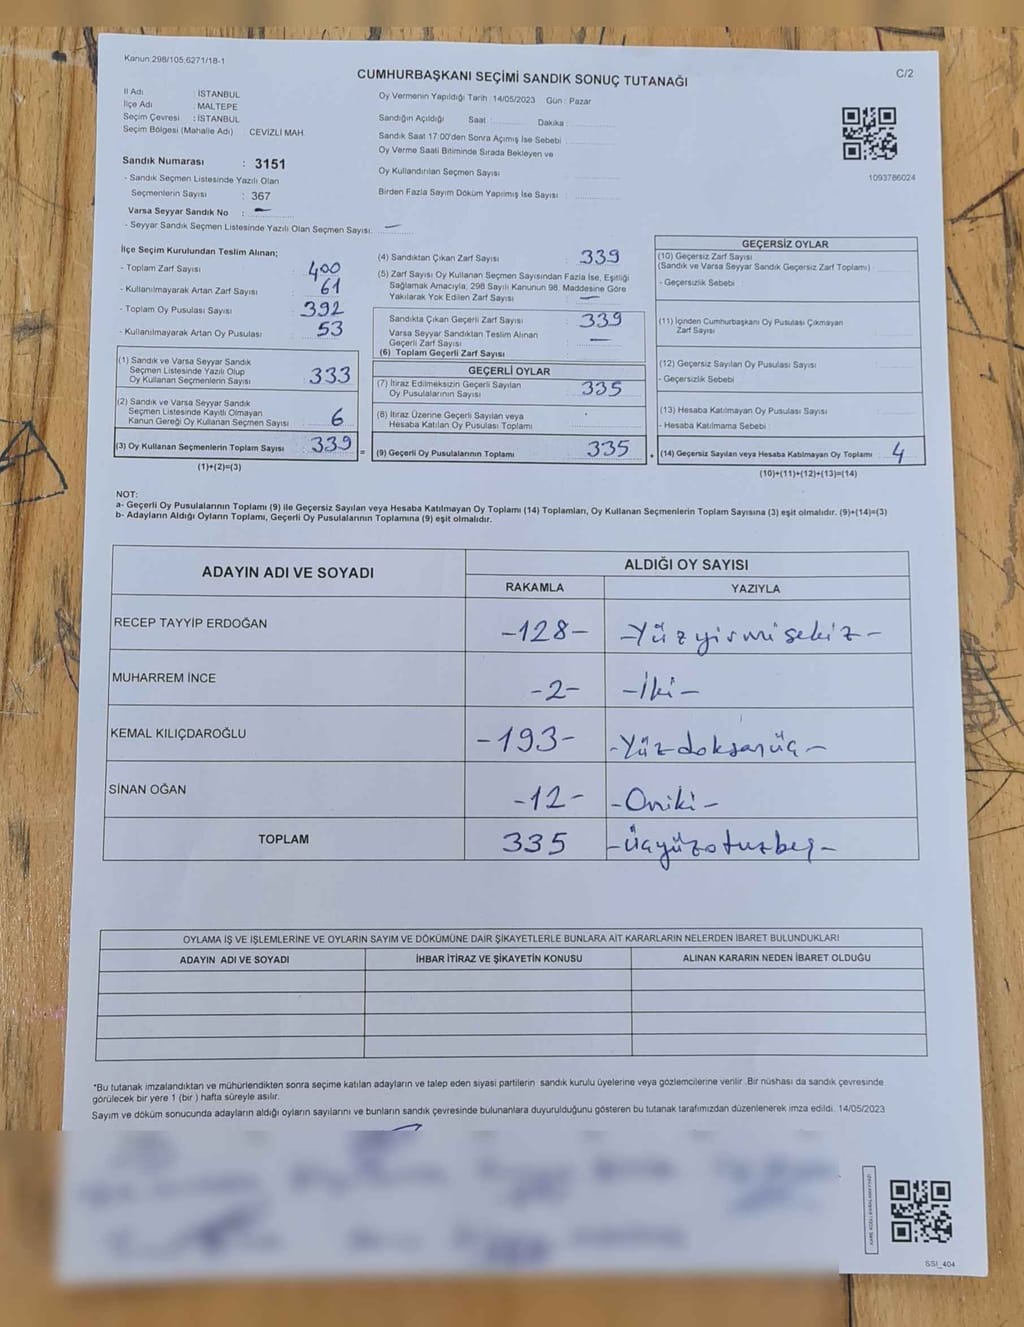 Kanun:298/105,6271/18-1
C/2
CUMHURBAŞKANI SEÇİMİ SANDIK SONUÇ TUTANAĞI
İl Adı : İSTANBUL
İlçe Adı : MALTEPE
Seçim Çevresi : İSTANBUL
Seçim Bölgesi (Mahalle Adı) : CEVİZLİ MAH.
Sandık Numarası : 3151
- Sandık Seçmen Listesinde Yazılı Olan
Seçmenlerin Sayısı : 367
Varsa Seyyar Sandık No : —
- Seyyar Sandık Seçmen Listesinde Yazılı Olan Seçmen Sayısı: —
Oy Vermenin Yapıldığı Tarih :14/05/2023 Gün : Pazar
Sandığın Açıldığı Saat : Dakika :
Sandık Saat 17:00'den Sonra Açımış İse Sebebi :
Oy Verme Saati Bitiminde Sırada Bekleyen ve
Oy Kullandırılan Seçmen Sayısı :
Birden Fazla Sayım Döküm Yapılmış İse Sayısı :
1093786024
İlçe Seçim Kurulundan Teslim Alınan;
- Toplam Zarf Sayısı : 400
- Kullanılmayarak Artan Zarf Sayısı : 61
- Toplam Oy Pusulası Sayısı : 392
- Kullanılmayarak Artan Oy Pusulası : 53
(1) Sandık ve Varsa Seyyar Sandık
Seçmen Listesinde Yazılı Olup
Oy Kullanan Seçmenlerin Sayısı : 333
(2) Sandık ve Varsa Seyyar Sandık
Seçmen Listesinde Kayıtlı Olmayan
Kanun Gereği Oy Kullanan Seçmen Sayısı : 6
(3) Oy Kullanan Seçmenlerin Toplam Sayısı : 339 =
(1)+(2)=(3)
(4) Sandıktan Çıkan Zarf Sayısı : 339
(5) Zarf Sayısı Oy Kullanan Seçmen Sayısından Fazla İse, Eşitliği
Sağlamak Amacıyla, 298 Sayılı Kanunun 98. Maddesine Göre
Yakılarak Yok Edilen Zarf Sayısı : —
Sandıkta Çıkan Geçerli Zarf Sayısı : 339
Varsa Seyyar Sandıktan Teslim Alınan
Geçerli Zarf Sayısı : —
(6) Toplam Geçerli Zarf Sayısı
GEÇERLİ OYLAR
(7) İtiraz Edilmeksizin Geçerli Sayılan
Oy Pusulalarının Sayısı : 335
(8) İtiraz Üzerine Geçerli Sayılan veya
Hesaba Katılan Oy Pusulası Toplamı :
(9) Geçerli Oy Pusulalarının Toplamı : 335 +
GEÇERSİZ OYLAR
(10) Geçersiz Zarf Sayısı
(Sandık ve Varsa Seyyar Sandık Geçersiz Zarf Toplamı) :
- Geçersizlik Sebebi :
(11) İçinden Cumhurbaşkanı Oy Pusulası Çıkmayan
Zarf Sayısı :
(12) Geçersiz Sayılan Oy Pusulası Sayısı :
- Geçersizlik Sebebi :
(13) Hesaba Katılmayan Oy Pusulası Sayısı :
- Hesaba Katılmama Sebebi :
(14) Geçersiz Sayılan veya Hesaba Katılmayan Oy Toplamı : 4
(10)+(11)+(12)+(13)=(14)
NOT:
a- Geçerli Oy Pusulalarının Toplamı (9) ile Geçersiz Sayılan veya Hesaba Katılmayan Oy Toplamı (14) Toplamları, Oy Kullanan Seçmenlerin Toplam Sayısına (3) eşit olmalıdır. (9)+(14)=(3)
b- Adayların Aldığı Oyların Toplamı, Geçerli Oy Pusulalarının Toplamına (9) eşit olmalıdır.
ADAYIN ADI VE SOYADI
ALDIĞI OY SAYISI
RAKAMLA YAZIYLA
RECEP TAYYİP ERDOĞAN -128- -Yüzyirmisekiz-
MUHARREM İNCE -2- -İki-
KEMAL KILIÇDAROĞLU -193- -Yüzdoksanüç-
SİNAN OĞAN -12- -Oniki-
TOPLAM 335 -üçyüzotuzbeş-
OYLAMA İŞ VE İŞLEMLERİNE VE OYLARIN SAYIM VE DÖKÜMÜNE DAİR ŞİKAYETLERLE BUNLARA AİT KARARLARIN NELERDEN İBARET BULUNDUKLARI
ADAYIN ADI VE SOYADI İHBAR İTİRAZ VE ŞİKAYETİN KONUSU ALINAN KARARIN NEDEN İBARET OLDUĞU
*Bu tutanak imzalandıktan ve mühürlendikten sonra seçime katılan adayların ve talep eden siyasi partilerin sandık kurulu üyelerine veya gözlemcilerine verilir. Bir nüshası da sandık çevresinde
görülecek bir yere 1 (bir) hafta süreyle asılır.
Sayım ve döküm sonucunda adayların aldığı oyların sayılarını ve bunların sandık çevresinde bulunanlara duyurulduğunu gösteren bu tutanak tarafımızdan düzenlenerek imza edildi. 14/05/2023
SSI_404